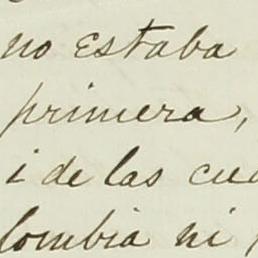 no estaba
primera,
i de las cua
lombia ni